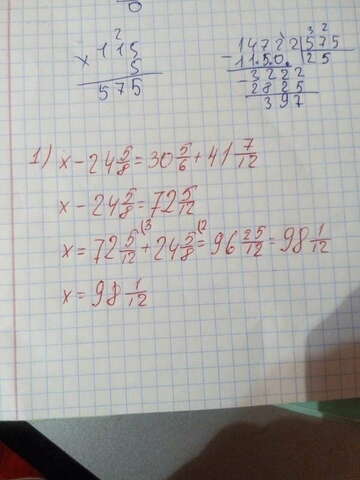 0
2
×115
5
575
3 2
14722|575
-11.5.0. 25
3222
2825
397
1) x - 24 5/8 = 30 5/6 + 41 7/12
x - 24 5/8 = 72 5/12
x = 72 5/12 (3 + 24 5/8 (2 = 96 25/12 = 98 1/12
x = 98 1/12